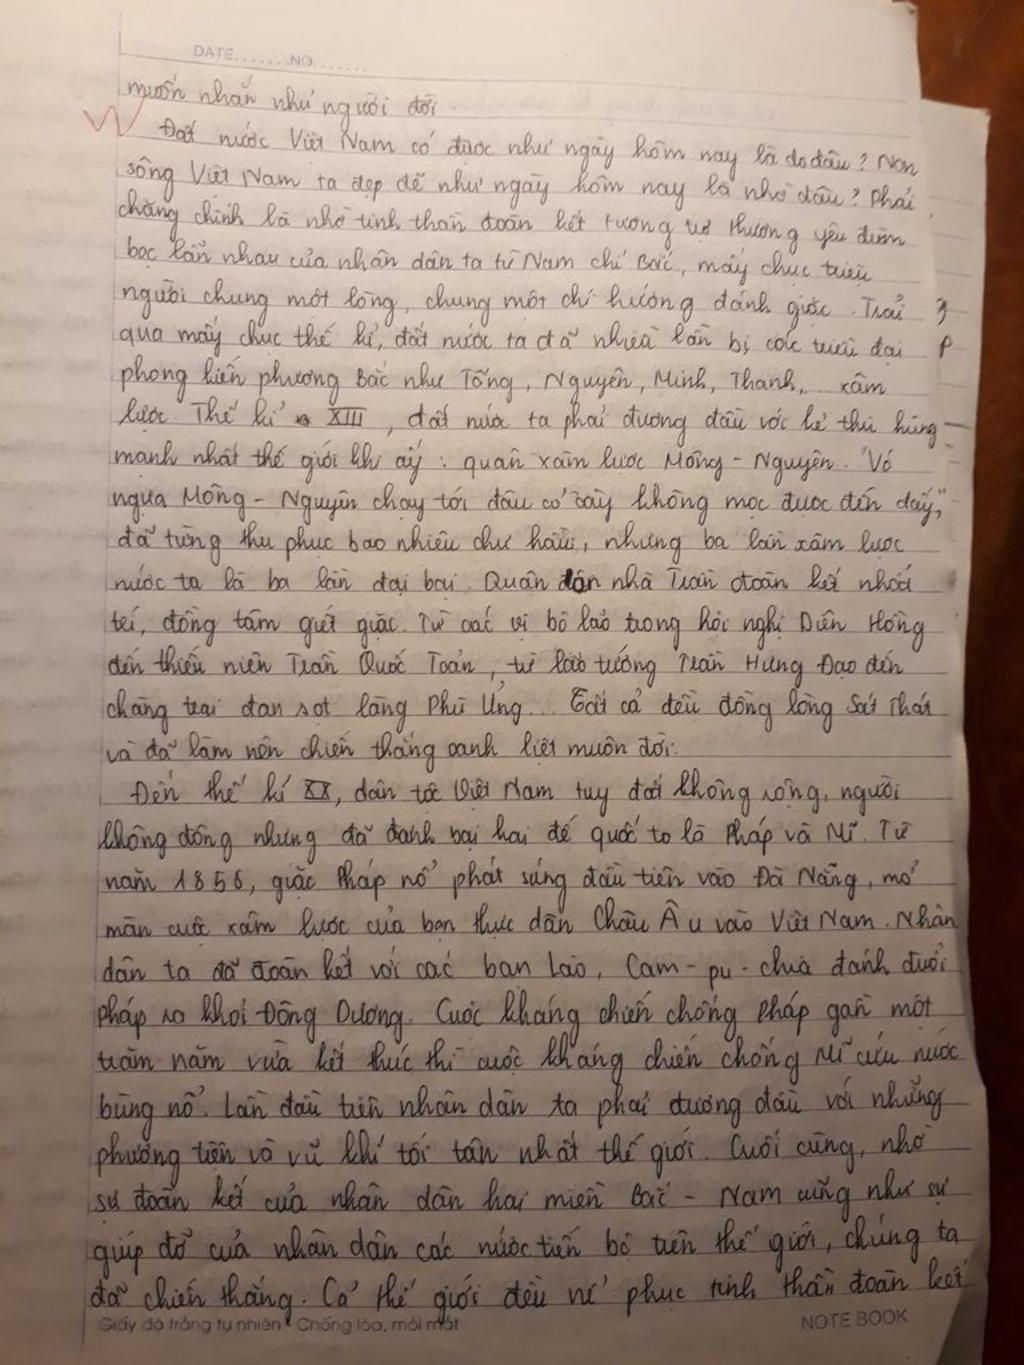 DATE.......NO.......
muốn nhắn như người đời.
Đất nước Việt Nam có được như ngày hôm nay là do đâu? Non
sông Việt Nam ta đẹp đẽ như ngày hôm nay là nhờ đâu? Phải
chăng chính là nhờ tinh thần đoàn kết tương tự thương yêu đùm
bọc lẫn nhau của nhân dân ta từ Nam chí Bắc, mấy chục triệu
người chung một lòng, chung một chí hướng đánh giặc. Trải
qua mấy chục thế kỉ, đất nước ta đã nhiều lần bị các triều đại
phong kiến phương Bắc như Tống, Nguyên, Minh, Thanh,.. xâm
lược. Thế kỉ XIII, đất nước ta phải đương đầu với kẻ thù hùng
mạnh nhất thế giới khi ấy: quân xâm lược Mông - Nguyên. "Vó
ngựa Mông - Nguyên chạy tới đâu cỏ cây không mọc được đến đấy,"
đã từng thu phục bao nhiêu chư hầu, nhưng ba lần xâm lược
nước ta là ba lần đại bại. Quân dân nhà Trần đoàn kết nhất
trí, đồng tâm giết giặc. Từ các vị bô lão trong hội nghị Diên Hồng
đến thiếu niên Trần Quốc Toản, từ lão tướng Trần Hưng Đạo đến
chàng trai đan sọt làng Phù Ủng... Tất cả đều đồng lòng Sát Thát
và đã làm nên chiến thắng oanh liệt muôn đời.
Đến thế kỉ XX, dân tộc Việt Nam tuy đất không rộng, người
không đông nhưng đã đánh bại hai đế quốc to là Pháp và Mĩ. Từ
năm 1856, giặc Pháp nổ phát súng đầu tiên vào Đà Nẵng, mở
màn cuộc xâm lược của bọn thực dân Châu Âu vào Việt Nam. Nhân
dân ta đã đoàn kết với các bạn Lào, Cam-pu-chia đánh đuổi
Pháp ra khỏi Đông Dương. Cuộc kháng chiến chống Pháp gần một
trăm năm vừa kết thúc thì cuộc kháng chiến chống Mĩ cứu nước
bùng nổ. Lần đầu tiên nhân dân ta phải đương đầu với những
phương tiện và vũ khí tối tân nhất thế giới. Cuối cùng, nhờ
sự đoàn kết của nhân dân hai miền Bắc - Nam cũng như sự
giúp đỡ của nhân dân các nước tiến bộ trên thế giới, chúng ta
đã chiến thắng. Cả thế giới đều nể phục tinh thần đoàn kết
Giấy độ trắng tự nhiên - Chống lóa, mỏi mắt
NOTE BOOK